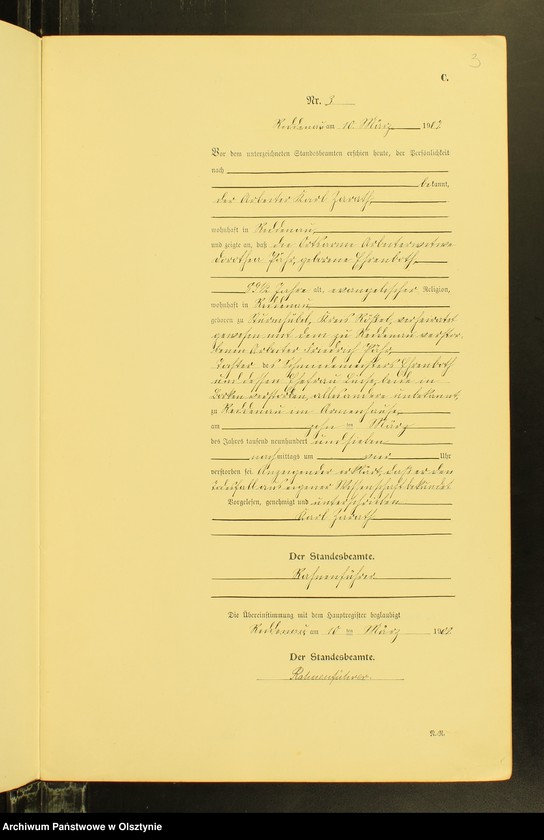 3
C.
Nr. 3
Reddenau am 10. März 190
Vor dem unterzeichneten Standesbeamten erschien heute, der Persönlichkeit
nach
bekannt,
der Arbeiter Karl
wohnhaft in Reddenau
und zeigte an, daß die Ortsarme Arbeiterwitwe
Dorothea geborene Ehrenboth
89 1/2 Jahre alt, evangelischer Religion,
wohnhaft in Reddenau
geboren zu Sturmhübel, Kreis Rößel, verheiratet
gewesen mit dem zu Reddenau verstor-
benen Arbeiter Friedrich
Tochter des Schmiedemeisters Ehrenboth
und dessen Ehefrau beide in
verstorben, alles andere unbekannt,
zu Reddenau im Armenhause
am zehn ten März
des Jahres tausend neunhundert und sieben
nachmittags um vier Uhr
verstorben sei. Anzeigender erklärt, daß er den
aus eigener Wissenschaft bekundet
Vorgelesen, genehmigt und unterschrieben
Karl
Der Standesbeamte.
Rahnenführer
Die Übereinstimmung mit dem Hauptregister beglaubigt
Reddenau am 10 ten März 190
Der Standesbeamte.
Rahnenführer
N.-N.
Archiwum Państwowe w Olsztynie